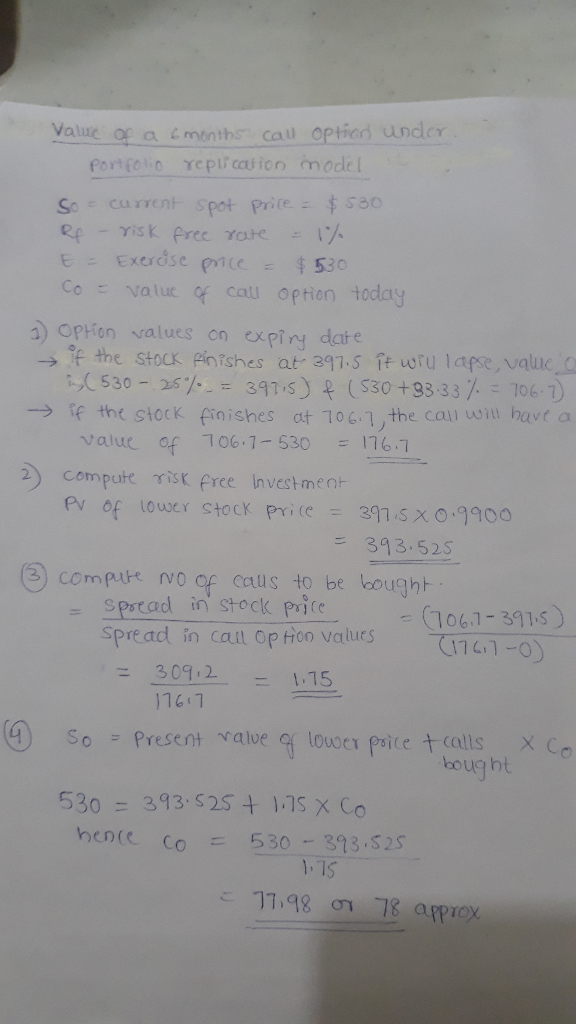 Value of a 6months call option under
portfolio replication model
So = current spot price = $530
Rf - risk free rate = 1%
E = Exercise price = $530
Co = value of call option today
1) Option values on expiry date
→ if the stock finishes at 397.5 it will lapse, value 0
(530 - 25% = 397.5) & (530 + 33.33% = 706.7)
→ if the stock finishes at 706.7, the call will have a
value of 706.7 - 530 = 176.7
2) compute risk free Investment
PV of lower stock price = 397.5 x 0.9900
= 393.525
3) compute NO of calls to be bought.
= Spread in stock price / Spread in call option values = (706.7 - 397.5) / (176.7 - 0)
= 309.2 / 176.7 = 1.75
4) So = Present value of lower price + calls bought x Co
530 = 393.525 + 1.75 x Co
hence Co = 530 - 393.525 / 1.75
= 77.98 or 78 approx